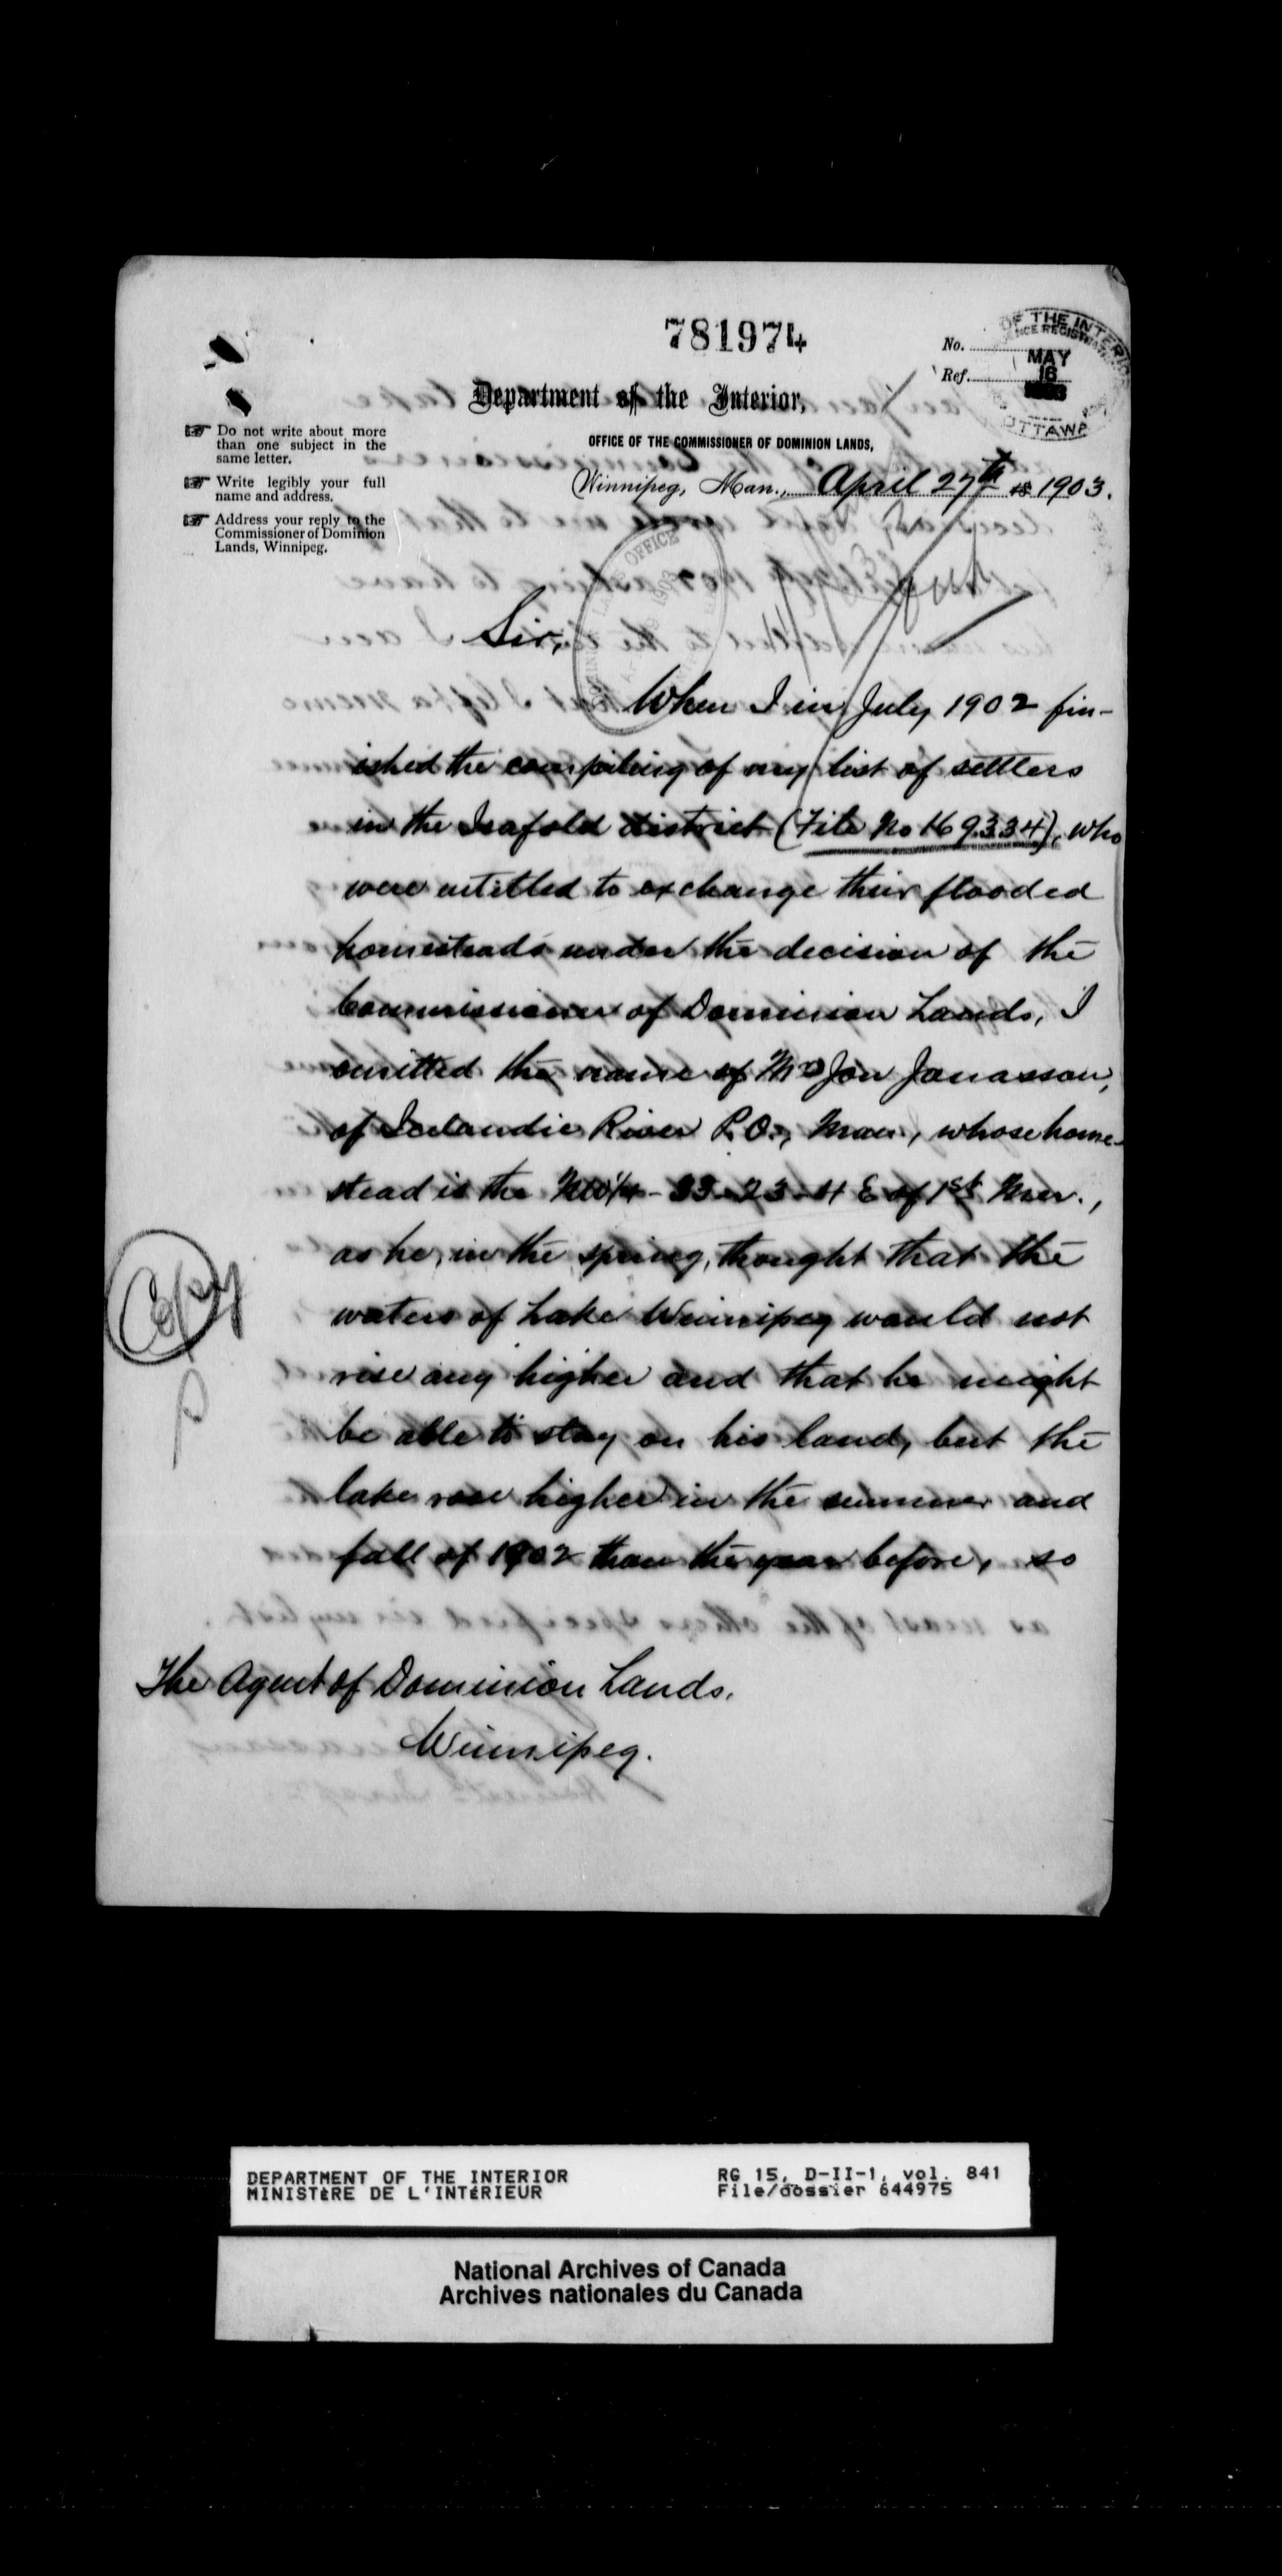 781974
No.
Ref.
OF THE INTERIOR
MAY
16
OTTAWA
Department of the Interior,
OFFICE OF THE COMMISSIONER OF DOMINION LANDS,
Winnipeg, Man., April 27th 18 1903.
Do not write about more
than one subject in the
same letter.
Write legibly your full
name and address.
Address your reply to the
Commissioner of Dominion
Lands, Winnipeg.
OFFICE
Sir,
When I in July 1902 fin-
ished the compiling of my list of settlers
in the Isafold district (File No 169334), who
were entitled to exchange their flooded
homesteads under the decision of the
Commissioner of Dominion Lands, I
omitted the name of Mr Jon Jonasson,
of Icelandic River P.O., Man., whose home-
stead is the NW¼ - 33-23-4 E of 1st Mer.,
as he, in the spring, thought that the
waters of Lake Winnipeg would not
rise any higher and that he might
be able to stay on his land, but the
lake rose higher in the summer and
fall of 1902 than the year before, so
Copy
The Agent of Dominion Lands.
Winnipeg.
DEPARTMENT OF THE INTERIOR
MINISTÈRE DE L'INTÉRIEUR
RG 15, D-II-1, vol. 841
File/dossier 644975
National Archives of Canada
Archives nationales du Canada